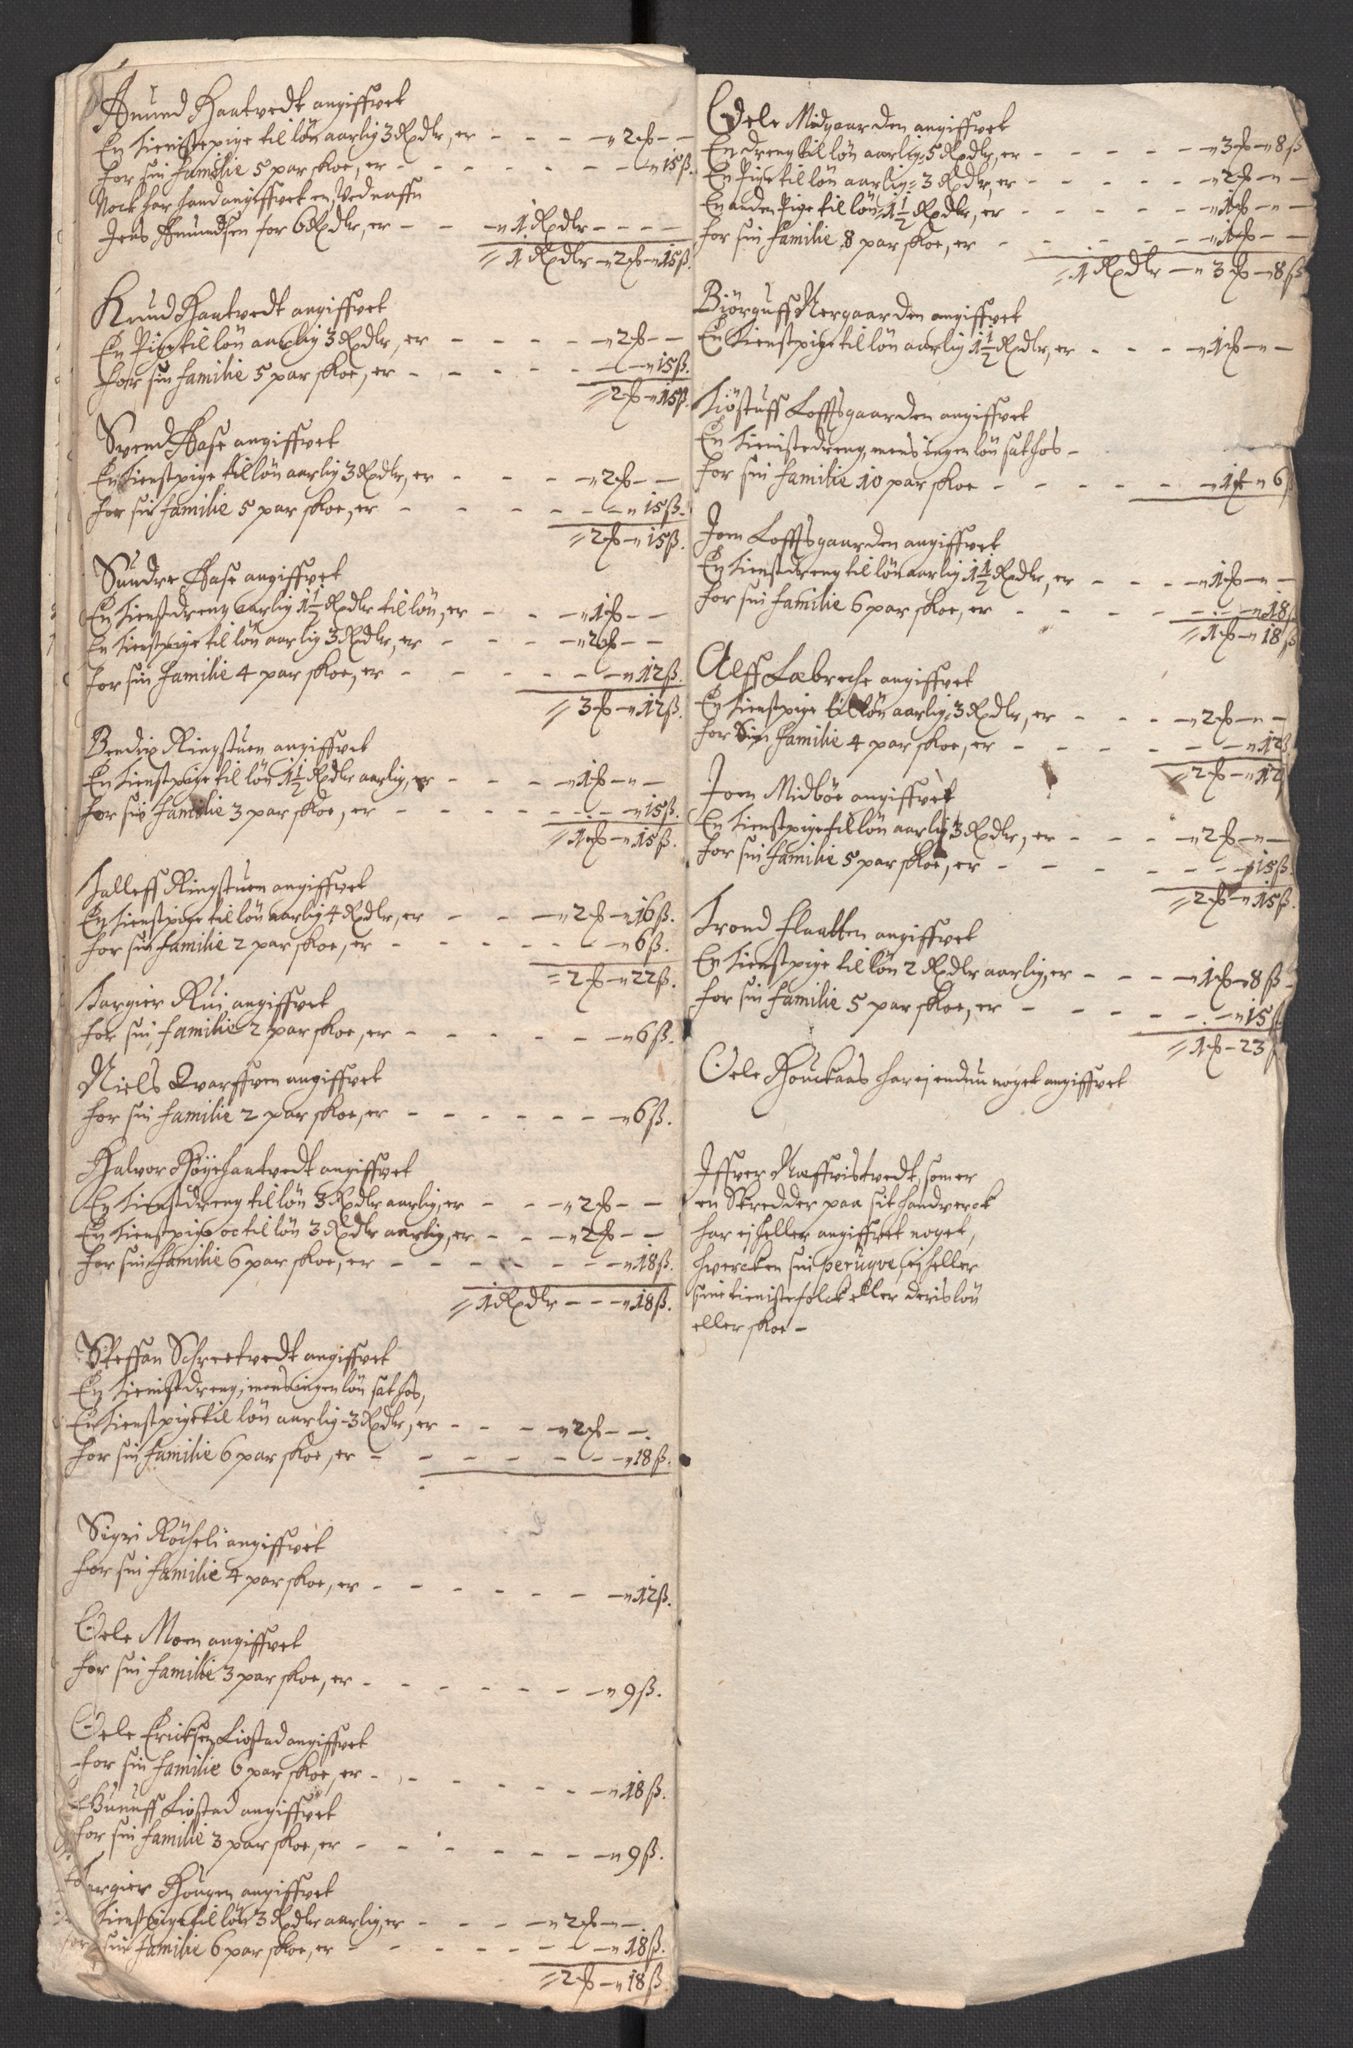 Anund Haatvedt angiffvet
En tienistepige til løn aarlig 3 Rxdlr, er - - - - „ 2 ß - -
for sin familie 5 par skoe, er - - - - - - „ 15 ß.
Nock har hand angiffvet en, ved naffn
Jens Amundsen for 6 Rxdlr, er - - „ 1 Rxdlr - - - -
1 Rxdlr - „ 2 ß - „ 15 ß.
Knud Haatvedt angiffvet
En Pige til løn aarlig 3 Rxdlr, er - - - - „ 2 ß - -
for sin familie 5 par skoe, er - - - - - „ 15 ß.
2 ß „ 15 ß.
Svend Aase angiffvet
En tienstpige til løn aarlig 3 Rxdlr, er - - - „ 2 ß - -
for sin familie 5 par skoe, er - - - - - „ 15 ß.
2 ß - „ 15 ß.
Sundre Aase angiffvet
En tienstdreng aarlig 1½ Rxdlr til løn, er - - „ 1 ß - -
En tienstpige til løn aarlig 3 Rxdlr, er - - - „ 2 ß - -
for sin familie 4 par skoe, er - - - - - „ 12 ß.
3 ß - „ 12 ß.
Bendix Ringstuen angiffvet
En tienstpige til løn 1½ Rxdlr aarlig, er - - - „ 1 ß - „ -
for sin familie 3 par skoe, er - - - - - „ 15 ß.
1 ß - „ 15 ß.
Talleff Ringstuen angiffvet
En tienstpige til løn aarlig 4 Rxdlr, er - - - „ 2 ß - „ 16 ß.
for sin familie 2 par skoe, er - - - - - - „ 6 ß.
2 ß - „ 22 ß.
Targier Rui angiffvet
for sin familie 2 par skoe, er - - - - - - „ 6 ß.
Niels Qvarffven angiffvet
for sin familie 2 par skoe, er - - - - - - „ 6 ß.
Halvor Høyehaatvedt angiffvet
En tienstdreng til løn 3 Rxdlr aarlig, er - - - „ 2 ß - -
En tienstpige oc til løn 3 Rxdlr aarlig, er - - - „ 2 ß - -
for sin familie 6 par skoe, er - - - - - - „ 18 ß.
1 Rxdlr - - - „ 18 ß.
Steffan Schreetvedt angiffvet
En tienistdreng, mens ingen løn sat hos,
En tienstpige til løn aarlig 3 Rxdlr, er - - - - „ 2 ß - -
for sin familie 6 par skoe, er - - - - - - „ 18 ß.
Sigri Røcheli angiffvet
for sin familie 4 par skoe, er - - - - - - „ 12 ß.
Oele Moen angiffvet
for sin familie 3 par skoe, er - - - - - - „ 9 ß.
Oele Ericksen Liostad angiffvet
for sin familie 6 par skoe, er - - - - - - „ 18 ß.
Gunuff Liostad angiffvet
for sin familie 3 par skoe, er - - - - - - „ 9 ß.
Targier Hougen angiffvet
tienstpige til løn 3 Rxdlr aarlig, er - - - - „ 2 ß - „ -
for sin familie 6 par skoe, er - - - - - - „ 18 ß.
2 ß - „ 18 ß
Oele Midgaarden angiffvet
En dreng til løn aarlig 5 Rxdlr, er - - - - - „ 3 ß - „ 8 ß
En Pige til løn aarlig 3 Rxdlr, er - - - - - „ 2 ß - „ -
En anden Pige til løn 1½ Rxdlr, er - - - - - „ 1 ß - „ -
for sin familie 8 par skoe, er - - - - - - „ 1 ß - -
1 Rxdlr - „ 3 ß - „ 8 ß
Biörguff Nergaarden angiffvet
En tienstpige til løn aarlig 1½ Rxdlr, er - - - - „ 1 ß - „ -
Kiöstuff Lofftsgaarden angiffvet
En tienistedreng, mens ingen løn sat hos -
for sin familie 10 par skoe - - - - - - „ 1 ß „ 6 ß
Joen Lofftsgaarden angiffvet
En tienstdreng til løn aarlig 1½ Rxdlr, er - - - „ 1 ß - „ -
for sin familie 6 par skoe, er - - - - - „ 18 ß
1 ß - „ 18 ß
Alff Læbreche angiffvet
En tienstpige til løn aarlig 3 Rxdlr, er - - - - „ 2 ß - „ -
for sin familie 4 par skoe, er - - - - - - „ 12 ß
2 ß - „ 12
Joen Midbøe angiffvet
En tienstpige til løn aarlig 3 Rxdlr, er - - - - „ 2 ß - „ -
for sin familie 5 par skoe, er - - - - - - „ 15 ß.
2 ß - „ 15 ß.
Trond Flaatten angiffvet
En tienstpige til løn 2 Rxdlr aarlig, er - - - „ 1 ß - „ 8 ß -
for sin familie 5 par skoe, er - - - - - - „ 15 ß
1 ß - 23 ß
Oele Houckaas har ej endnu noget angiffvet
Iffver Næffvistvedt, som er
en Skredder paa sit handverck
har ej heller angiffvet noget,
hvercken sin perúqve ej heller
sine tienistefolck eller deris løn
eller skoe -